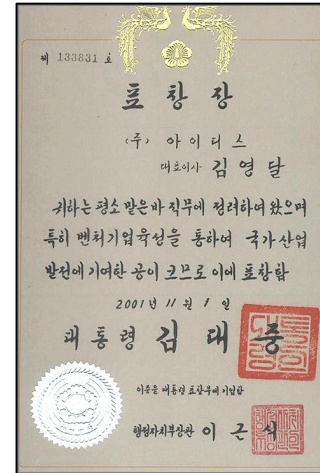 제 133831 호
표창장
(주) 아이디스
대표이사 김영달
귀하는 평소 맡은바 직무에 정려하여 왔으며
특히 벤처기업육성을 통하여 국가산업
발전에 기여한 공이 크므로 이에 표창함
2001년 11월 1일
대통령 김대중
이증을 대통령 표창부에 기입함
행정자치부장관 이근식